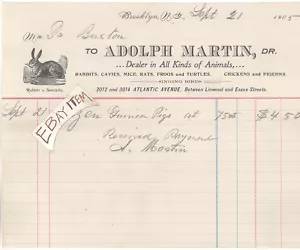 Brooklyn, N.Y. Sept 21 1905
Mr Dr Buxton
TO ADOLPH MARTIN, DR.
...Dealer in All Kinds of Animals,...
RABBITS, CAVIES, MICE, RATS, FROGS and TURTLES. CHICKENS and PIGEONS.
SINGING BIRDS
3012 and 3014 ATLANTIC AVENUE, Between Linwood and Essex Streets.
Rabbits a Specialty.
EBAY ITEM
Sept 21 Guinea Pigs at 75¢ $4.50
Received Payment
A. Martin